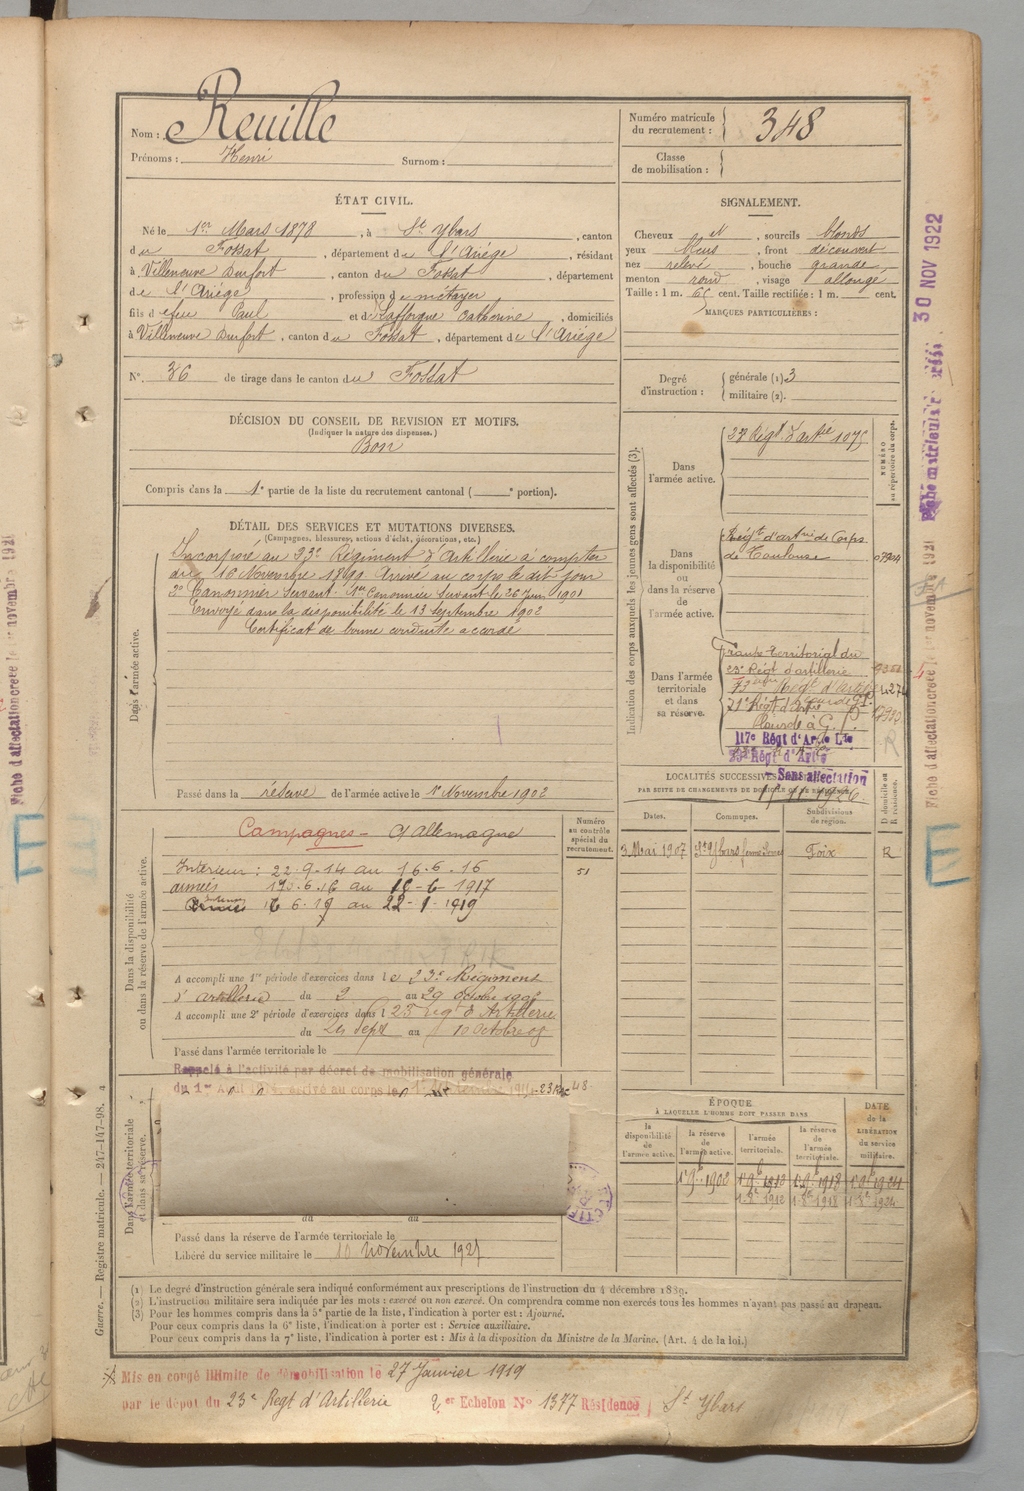 Nom : Reuille
Prénoms : Henri Surnom :
Numéro matricule du recrutement : 348
Classe de mobilisation :
ÉTAT CIVIL.
Né le 1er Mars 1878, à St Ybars, canton
du Fossat, département de l'Ariège, résidant
à Villeneuve Durfort, canton du Fossat, département
de l'Ariège, profession de métayer
fils d efeu Paul et de Lafforgue Catherine, domiciliés
à Villeneuve Durfort, canton du Fossat, département de l'Ariège
N° 36 de tirage dans le canton du Fossat
SIGNALEMENT.
Cheveux et, sourcils blonds
yeux bleus, front découvert
nez relevé, bouche grande
menton rond, visage allongé
Taille : 1 m. cent. Taille rectifiée : 1 m. cent.
MARQUES PARTICULIÈRES :
Degré d'instruction : générale (1) 3
militaire (2).
DÉCISION DU CONSEIL DE REVISION ET MOTIFS.
(Indiquer la nature des dispenses.)
Bon
Compris dans la 1e partie de la liste du recrutement cantonal ( e portion).
DÉTAIL DES SERVICES ET MUTATIONS DIVERSES.
(Campagnes, blessures, actions d'éclat, décorations, etc.)
Dans l'armée active.
Incorporé au 23e Régiment d'Artillerie à compter
du 16 Novembre 1899. Arrivé au corps le dit jour
2e Canonnier Servant. 1er Canonnier Servant le 26 Juin 1901
Envoyé dans la disponibilité le 13 septembre 1902
Certificat de bonne conduite accordé
Passé dans la réserve de l'armée active le 1er Novembre 1902
Indication des corps auxquels les jeunes gens sont affectés (3).
NUMÉRO au répertoire du corps.
Dans l'armée active.
23e Régt d'artie 1075
Dans la disponibilité ou dans la réserve de l'armée active.
Régt d'artie de Corps
de Toulouse
Dans l'armée territoriale et dans sa réserve.
territorial du
23e Régt d'artillerie
21e Régt d'Artie
117e Régt d'Artie Lde
23e Régt d'Artie
Sans affectation
LOCALITÉS SUCCESSIVES
PAR SUITE DE CHANGEMENTS DE DOMICILE OU DE
D domicile ou R résidence.
Dates. Communes. Subdivisions de région.
3 Mai 1907 St Ybars Foix R
Dans la disponibilité ou dans la réserve de l'armée active.
Numéro au contrôle spécial du recrutement.
51
Campagnes - C/ Allemagne
Intérieur : 22.9.14 au 16.6.16
armées 17.6.16 au 16-6-1917
au 22-1-1919
A accompli une 1re période d'exercices dans le 23e Régiment
d'artillerie du 2 au 29 octobre
A accompli une 2e période d'exercices dans l 23 Regt d'Artillerie
du 24 Sept au 10 Octobre 08
Passé dans l'armée territoriale le
Rappelé à l'activité par décret de mobilisation générale
du 1er arrivé au corps le
48
Dans l'armée territoriale et dans sa réserve.
du au
Passé dans la réserve de l'armée territoriale le
Libéré du service militaire le 10 novembre 1927
ÉPOQUE
À LAQUELLE L'HOMME DOIT PASSER DANS
la disponibilité de l'armée active.
la réserve de l'armée active.
l'armée territoriale.
la réserve de l'armée territoriale.
DATE de la LIBÉRATION du service militaire.
1 9bre 1902 1 9bre 1912 1 9bre 1918 1 9bre 1924
1.8e 1912 1.8e 1918 1.8e 1924
(1) Le degré d'instruction générale sera indiqué conformément aux prescriptions de l'instruction du 4 décembre 1889.
(2) L'instruction militaire sera indiquée par les mots : exercé ou non exercé. On comprendra comme non exercés tous les hommes n'ayant pas passé au drapeau.
(3) Pour les hommes compris dans la 5e partie de la liste, l'indication à porter est : Ajourné.
Pour ceux compris dans la 6e liste, l'indication à porter est : Service auxiliaire.
Pour ceux compris dans la 7e liste, l'indication à porter est : Mis à la disposition du Ministre de la Marine. (Art. 4 de la loi.)
Mis en congé illimité de démobilisation le 27 Janvier 1919
par le dépot du 23e Regt d'Artillerie 2 er Echelon N° 1377 Résidence St Ybars
Guerre. — Registre matricule. — 247-147-98.
30 NOV 1922
Fiche matriculaire
Fiche d'affectation créée le 1er novembre 1921
E
Fiche d'affectation créée le 1er novembre 1921
E